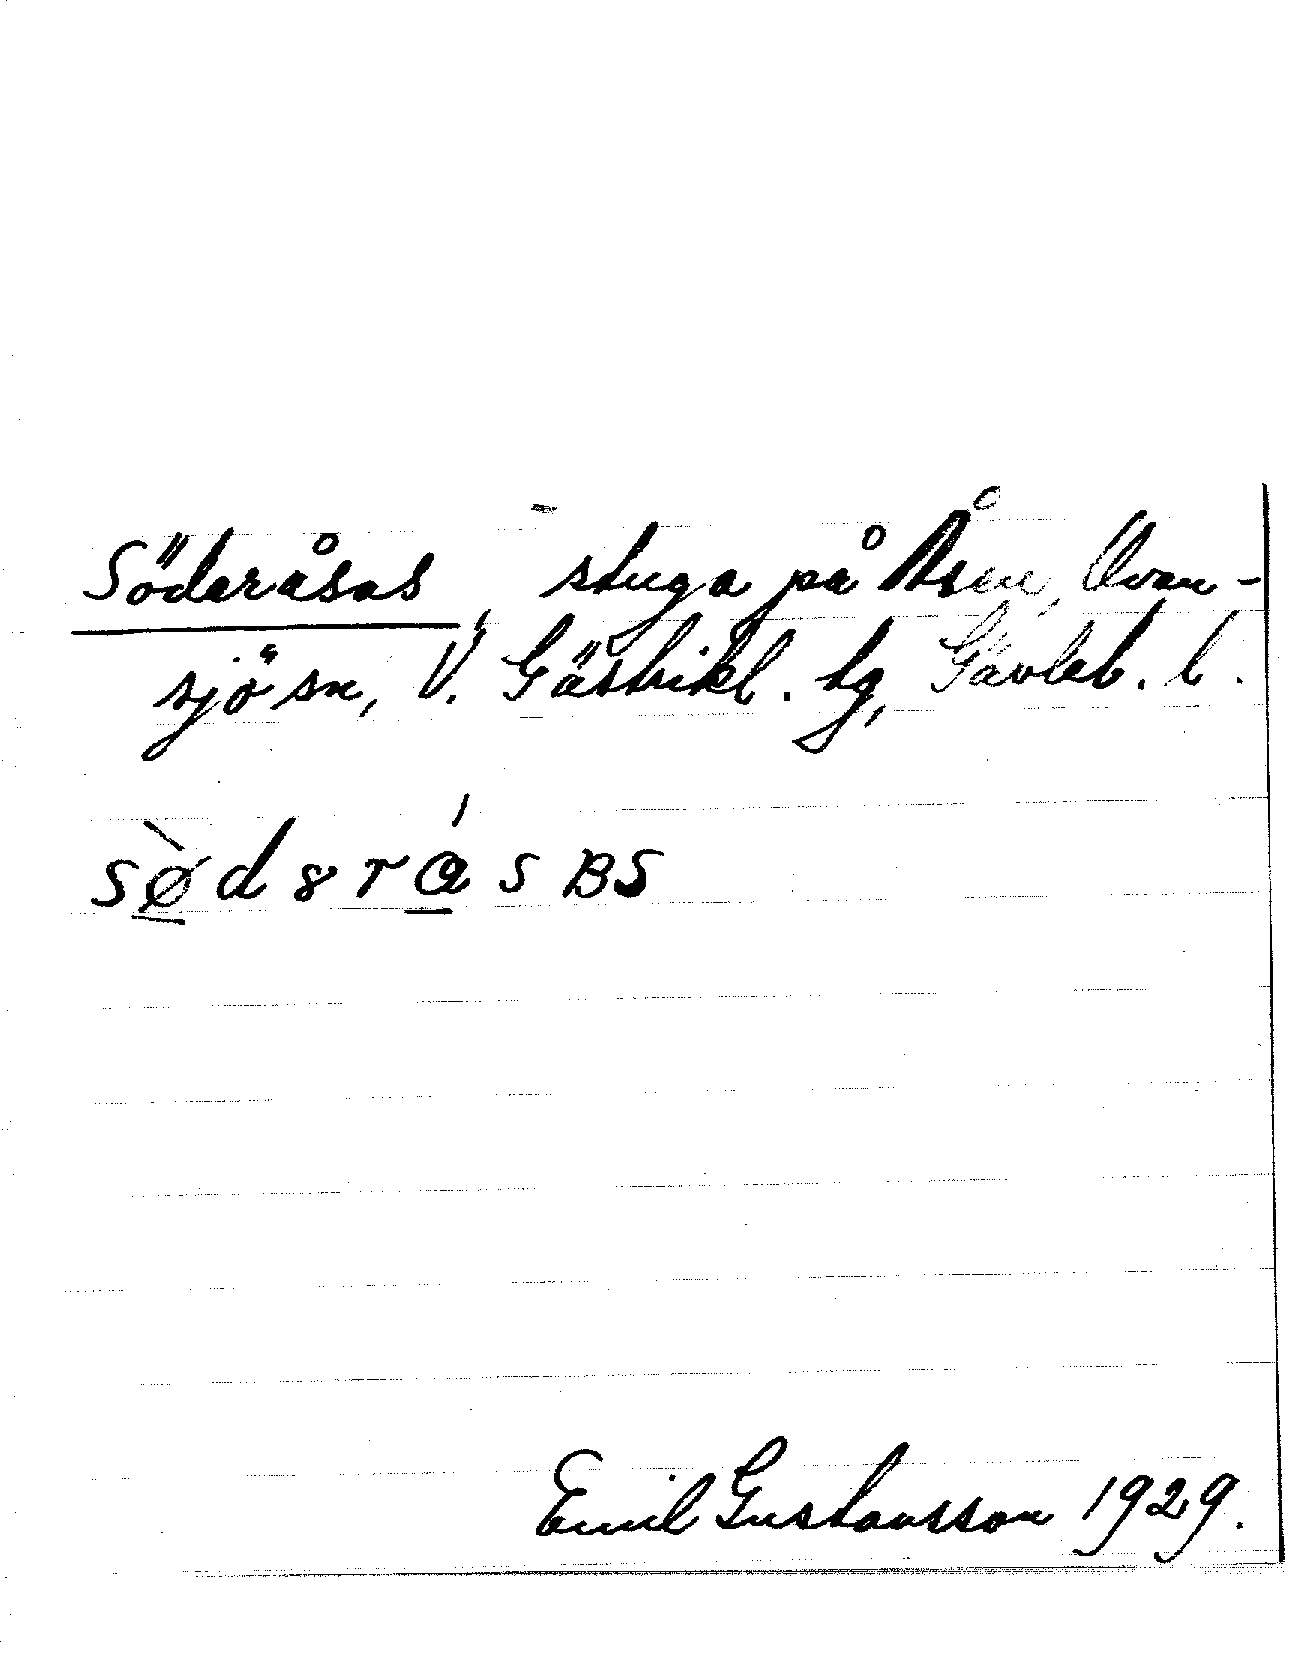 Söderåsas, stuga på Åsen, Ovan-
sjö sn, V. Gästrikl. tg, Gävleb. l.
sø̀dɜrɑ́sʙs
Emil Gustavsson 1929.